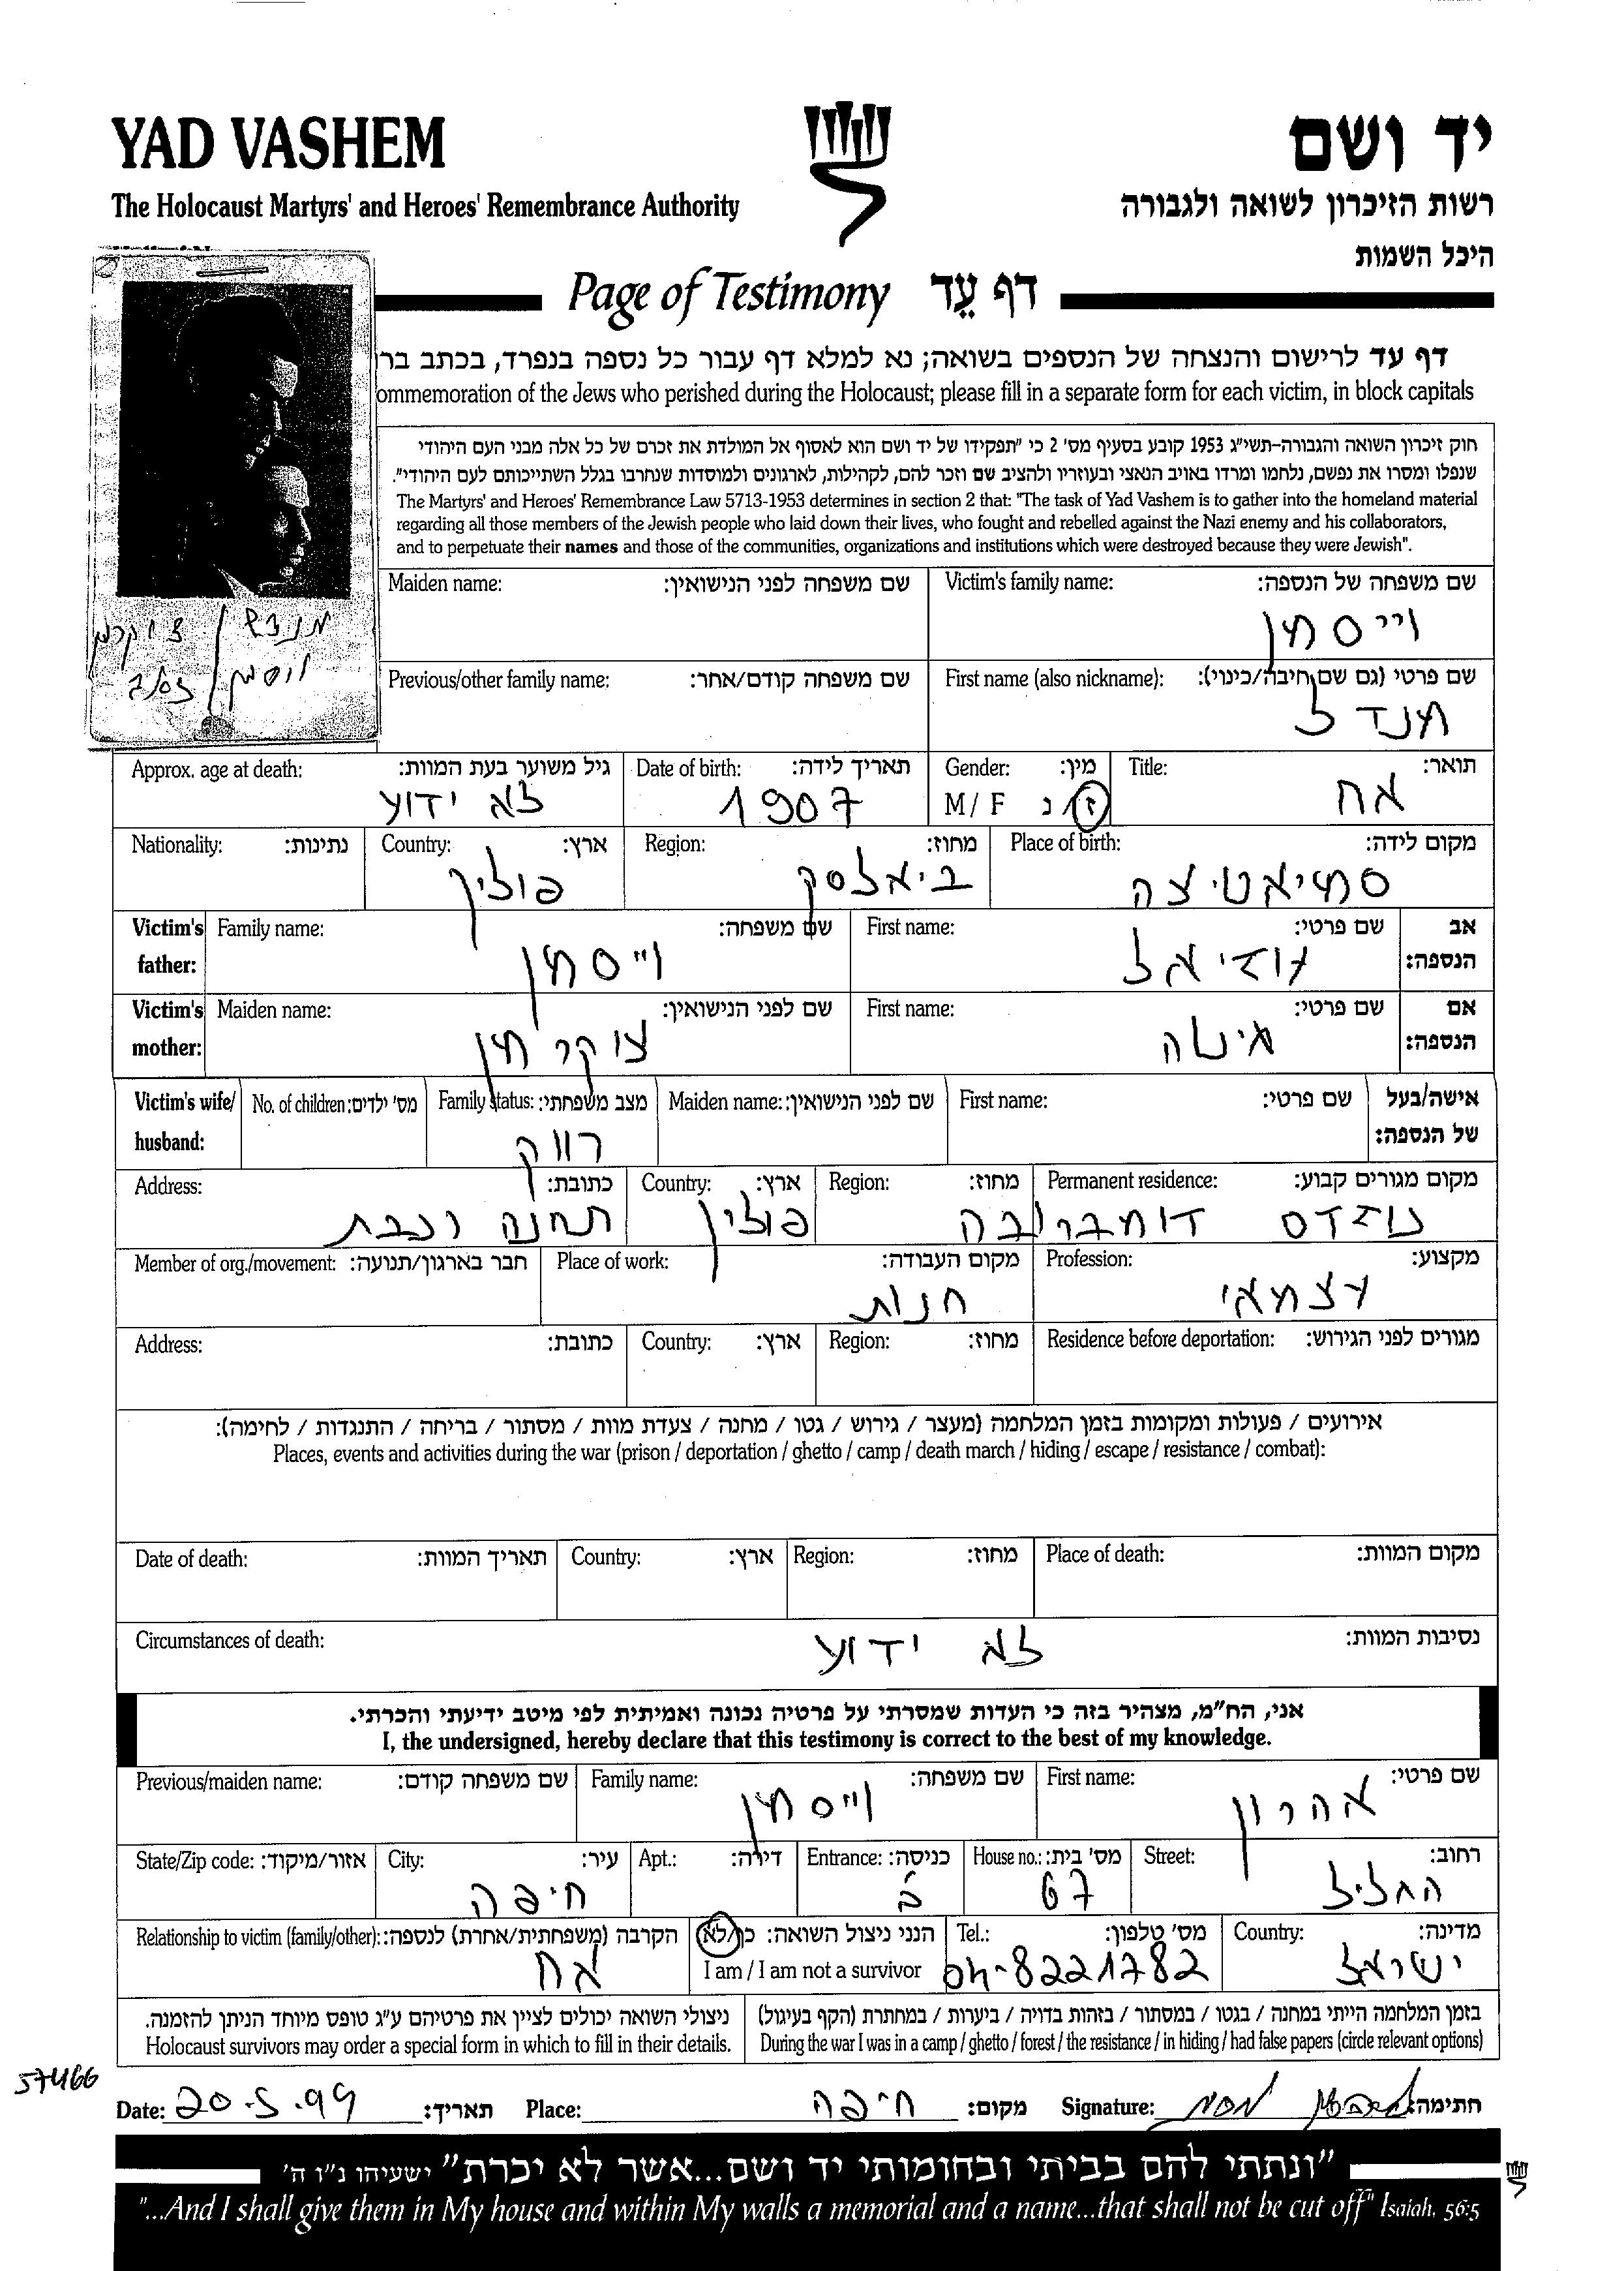 YAD VASHEM
יד ושם
The Holocaust Martyrs' and Heroes' Remembrance Authority
רשות הזיכרון לשואה ולגבורה
היכל השמות
Page of Testimony דף עֵד
דף עד לרישום והנצחה של הנספים בשואה; נא למלא דף עבור כל נספה בנפרד, בכתב בר
ommemoration of the Jews who perished during the Holocaust; please fill in a separate form for each victim, in block capitals
חוק זיכרון השואה והגבורה-תשי"ג 1953 קובע בסעיף מס' 2 כי "תפקידו של יד ושם הוא לאסוף אל המולדת את זכרם של כל אלה מבני העם היהודי
שנפלו ומסרו את נפשם, נלחמו ומרדו באויב הנאצי ובעוזריו ולהציב שם וזכר להם, לקהילות, לארגונים ולמוסדות שנחרבו בגלל השתייכותם לעם היהודי".
The Martyrs' and Heroes' Remembrance Law 5713-1953 determines in section 2 that: "The task of Yad Vashem is to gather into the homeland material
regarding all those members of the Jewish people who laid down their lives, who fought and rebelled against the Nazi enemy and his collaborators,
and to perpetuate their names and those of the communities, organizations and institutions which were destroyed because they were Jewish".
שם משפחה של הנספה: Victim's family name: שם משפחה לפני הנישואין: Maiden name:
וייסמן
מנדל צוקרמן
ויסמן זליג
שם פרטי (גם שם חיבה/כינוי): First name (also nickname): שם משפחה קודם/אחר: Previous/other family name:
מנדל
תואר: Title: מין: Gender: תאריך לידה: Date of birth: גיל משוער בעת המוות: Approx. age at death:
אח ז/נ M / F 1907 לא ידוע
מקום לידה: Place of birth: מחוז: Region: ארץ: Country: נתינות: Nationality:
סמיאטיצה ביאלסק פולין
אב הנספה: שם פרטי: First name: שם משפחה: Family name: Victim's father:
עוזיאל וייסמן
אם הנספה: שם פרטי: First name: שם לפני הנישואין: Maiden name: Victim's mother:
איטה צוקרמן
אישה/בעל של הנספה: שם פרטי: First name: שם לפני הנישואין: Maiden name: מצב משפחתי: Family status: מס' ילדים: No. of children: Victim's wife/ husband:
רווק
מקום מגורים קבוע: Permanent residence: מחוז: Region: ארץ: Country: כתובת: Address:
דומברובה פולין תחנה רכבת
מקצוע: Profession: מקום העבודה: Place of work: חבר בארגון/תנועה: Member of org./movement:
עצמאי חנות
מגורים לפני הגירוש: Residence before deportation: מחוז: Region: ארץ: Country: כתובת: Address:
אירועים / פעולות ומקומות בזמן המלחמה (מעצר / גירוש / גטו / מחנה / צעדת מוות / מסתור / בריחה / התנגדות / לחימה):
Places, events and activities during the war (prison / deportation / ghetto / camp / death march / hiding / escape / resistance / combat):
מקום המוות: Place of death: מחוז: Region: ארץ: Country: תאריך המוות: Date of death:
נסיבות המוות: לא ידוע Circumstances of death:
אני, הח"מ, מצהיר בזה כי העדות שמסרתי על פרטיה נכונה ואמיתית לפי מיטב ידיעתי והכרתי.
I, the undersigned, hereby declare that this testimony is correct to the best of my knowledge.
שם פרטי: First name: שם משפחה: Family name: שם משפחה קודם: Previous/maiden name:
אהרון וייסמן
רחוב: Street: מס' בית: House no.: כניסה: Entrance: דירה: Apt.: עיר: City: אזור/מיקוד: State/Zip code:
החליל 67 ב' חיפה
מדינה: Country: מס' טלפון: Tel.: הנני ניצול השואה: כן/לא הקרבה (משפחתית/אחרת) לנספה: Relationship to victim (family/other):
ישראל 04-8221782 I am / I am not a survivor אח
בזמן המלחמה הייתי במחנה / בגטו / במסתור / בזהות בדויה / ביערות / במחתרת (הקף בעיגול)
During the war I was in a camp / ghetto / forest / the resistance / in hiding / had false papers (circle relevant options)
ניצולי השואה יכולים לציין את פרטיהם ע"ג טופס מיוחד הניתן להזמנה.
Holocaust survivors may order a special form in which to fill in their details.
57466
חתימה: Signature: מקום: חיפה Place: תאריך: 20.5.99 Date:
"ונתתי להם בביתי ובחומותי יד ושם...אשר לא יכרת" ישעיהו נ"ו ה'
"...And I shall give them in My house and within My walls a memorial and a name...that shall not be cut off" Isaiah, 56:5